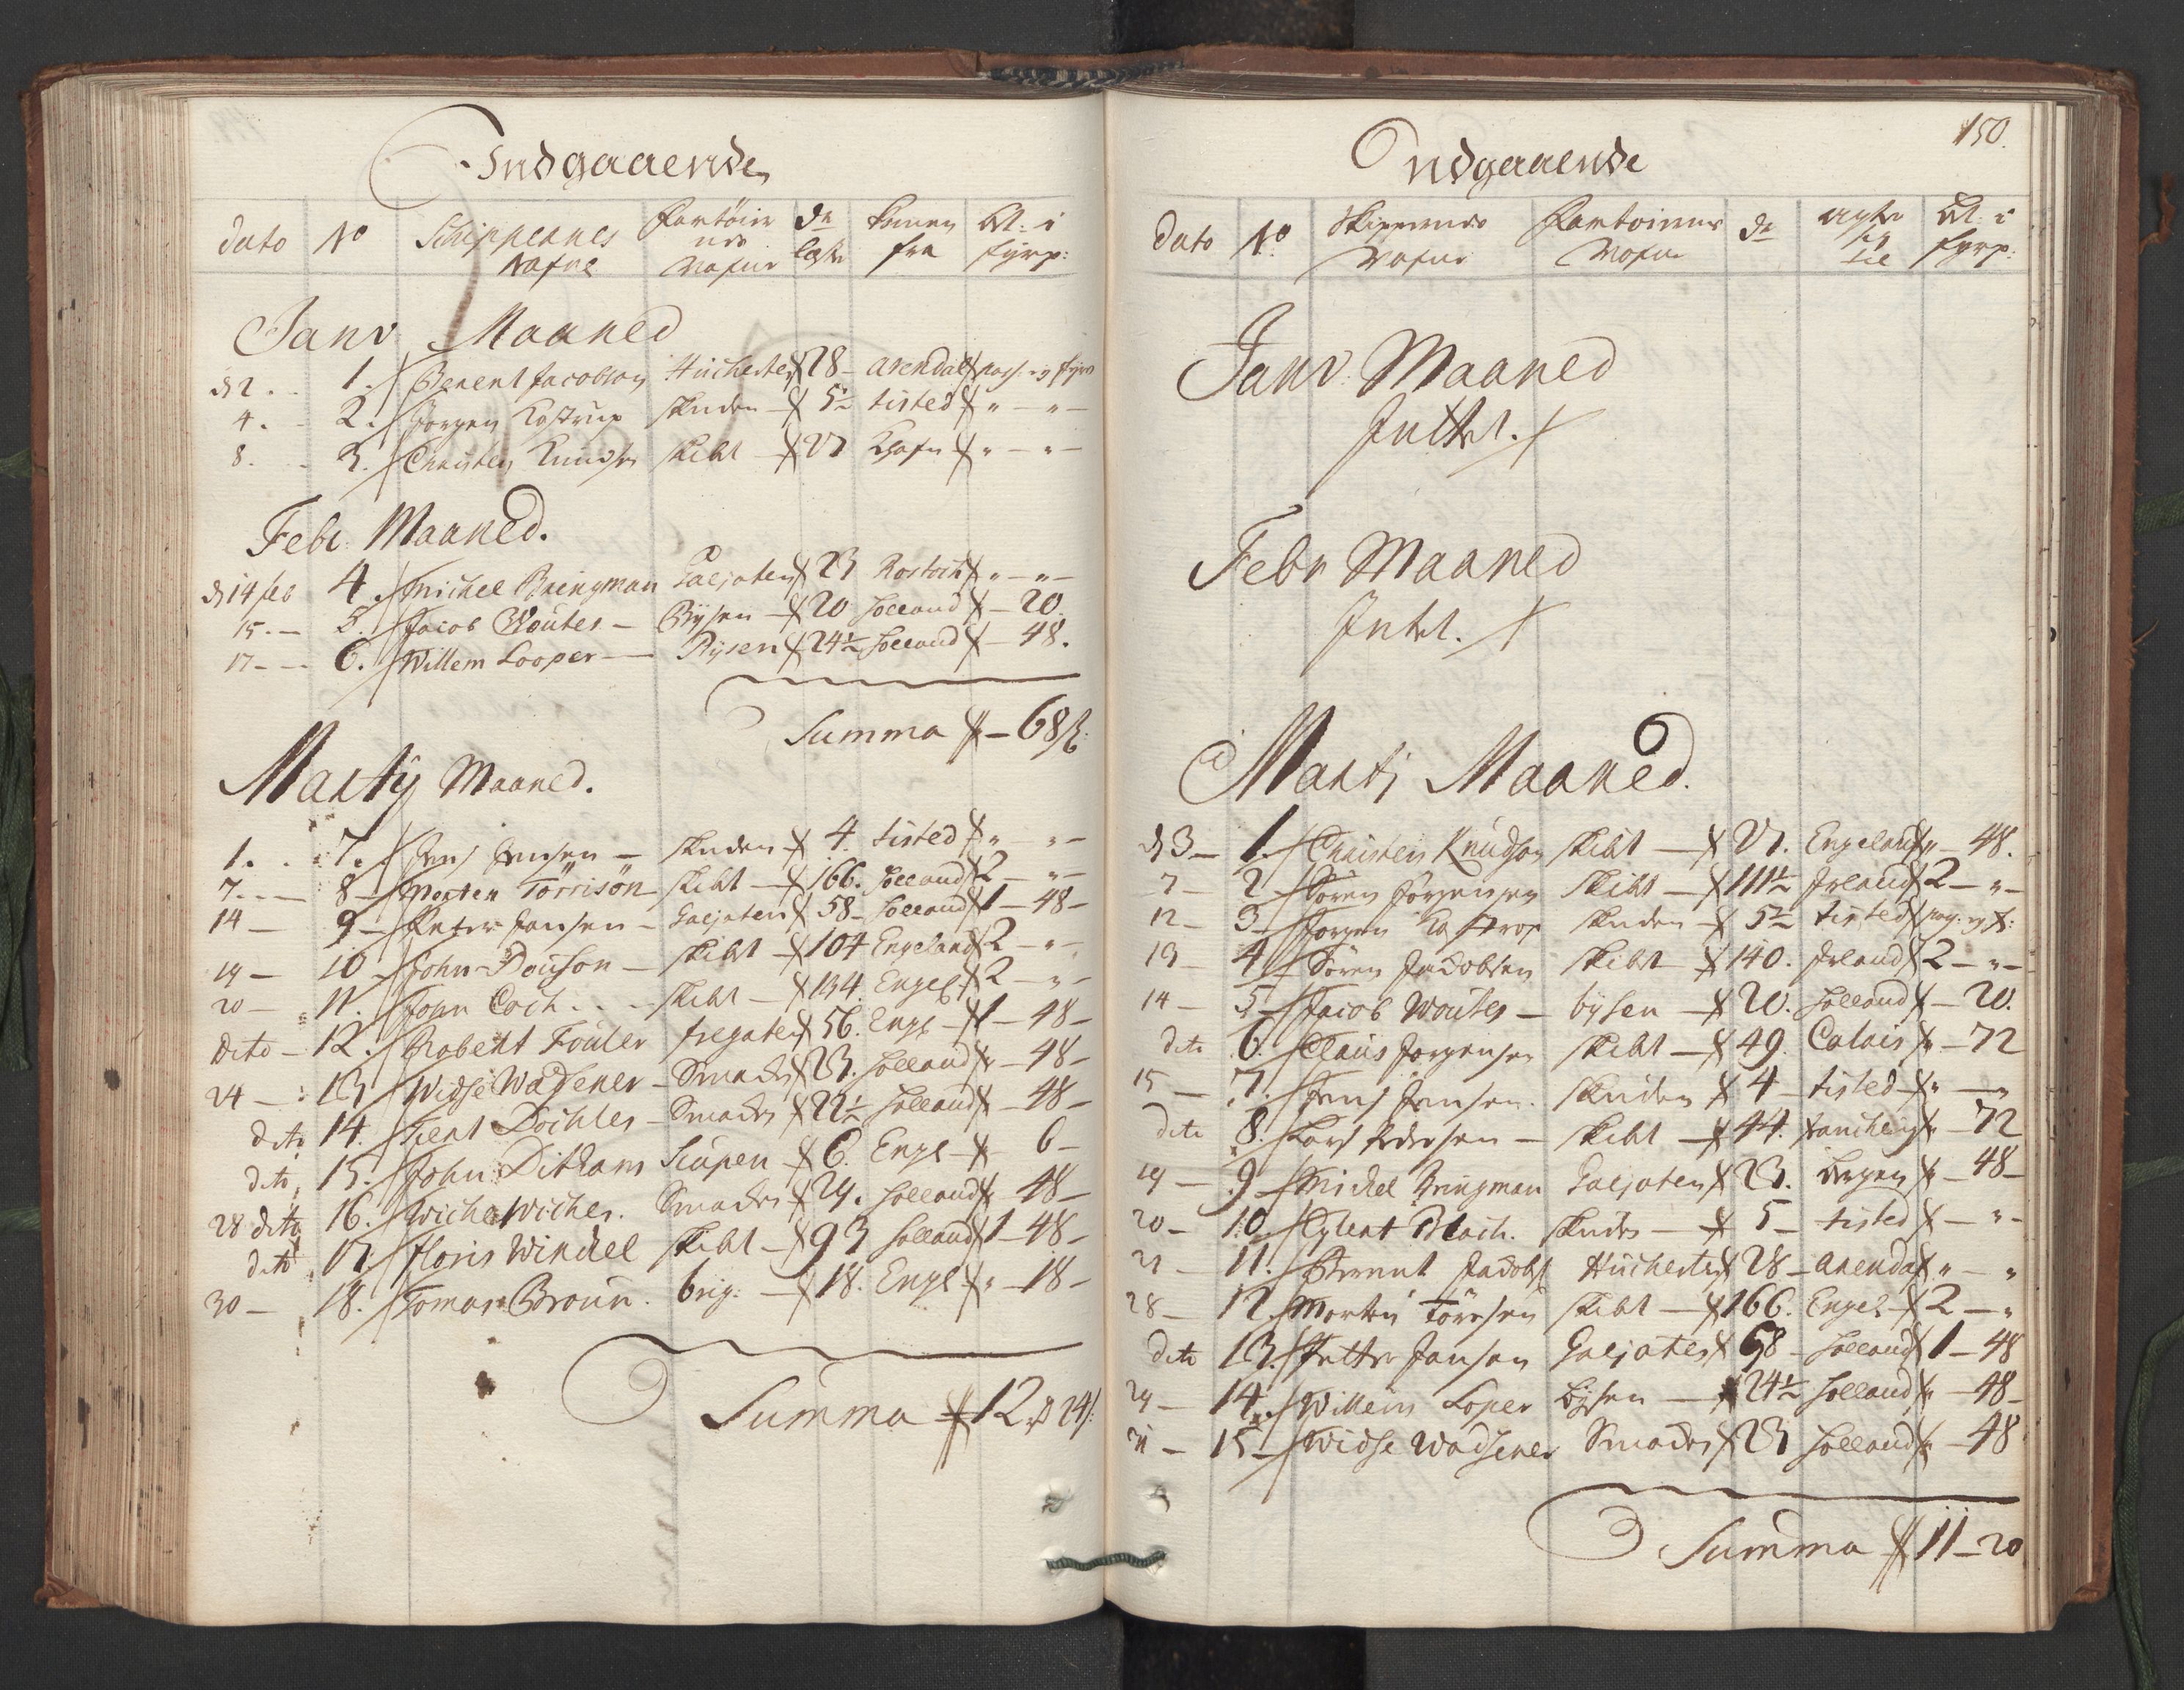 Indgaaende
Dato No Schippernes Nafne Fartöiernes Nafne Dr: læster komen fra bt: i fyrp:
Janv Maaned
d 2. 1. Berent Jacobsen Huchert 28 - Arendal pas: og fyr
4. 2. Jörgen Kastrup skuden - 5½ tisted " - " -
8. 3. Christen Knudsen skibt - 27 Khafn " - " -
Febr: Maaned.
d 14 feb 4. Michel Bringman Galjoten 23 Rostoch " - " -
15. - 5. Jacob Woutes - Bysen - 20 Holland - 20.
17 - - 6. Willem Looper - Bysen 24½ Holland - 48.
Summa - 68 ß:
Martij Maaned.
1. 7. Jens Jensen - skuden 4. tisted " " -
7. - - 8 - Morten Törrisön skibt - 166. Holland 2 - " -
14 - 9 - Peter Jansen - Galjoten 58 - Holland 1 - 48 -
19 - 10. John Douson - skibt - 104 Engeland 2 - " -
20 - 11. John Coch. - skibt - 134. Engel 2 - " -
Dito - 12. Robert Fouler fregaten 56. Engl - 1 - 48 -
24 - 13 Widse Wadsener - Smacke 23. Holland - 48 -
dito 14. Geert Dochles - Smacke 22½ Holland - 48 -
dito 15. John Ditkam Slupen 6. Engl - 6 -
28 dito 16. Wiche Wiches. Smacke 24. Holland - 48 -
dito 17 floris Winckel skibt - 93 Holland 1 - 48 -
30 - 18. Tomas Broun. brig. - 18. Engl " - 18 -
Summa 12 rd 24 ß:
150.
Udgaaende
Dato No. Skippernes Nafne Fartoiernes Nafne Dr agter sig til bt: i fyrp:
Janv: Maaned
Intet.
Febr Maaned
Intet.
Martj Maaned.
d 3 - 1. Christen Knudsen skibt - 27. Engeland " - 48.
7 - 2 - Sören Jörgensen skibt - 111½ Irland 2 - " -
12 - 3 - Jörgen Kastrop skuden - 5½ tisted pas: og f:
19 - 4 - Sören Jacobsen skibt 140. Irland 2 - " -
14 - 5 - Jacob Woutes - bysen - 20. Holland - 20.
dito 6. Claus Jorgensen skibt - 49. Calais - 72
15 - 7. Jens Jensen. skuden 4 - tisted " - "
dito 8. Lars Pedersen - skibt - 44. - 72
19 - 9 - Michel Bringman Galjoten 23. bergen - 48 -
20 - 10. Eylert Bloch. skude - 5 - tisted - " -
21 - 11. Berent Jacobs Huchert 28 - Arendal " - "
28 - 12. Morten Törresen skibt - 166. Engel - 2 - "
dito 13. Petter Jansen Galjoten 58 - Holland 1 - 48
29 - 14. Willem Loper bysen - 24½ Holland - 48 -
31 - 15 - Widse Wadsener Smacke 23 Holland - 48
Summa 11 - 20